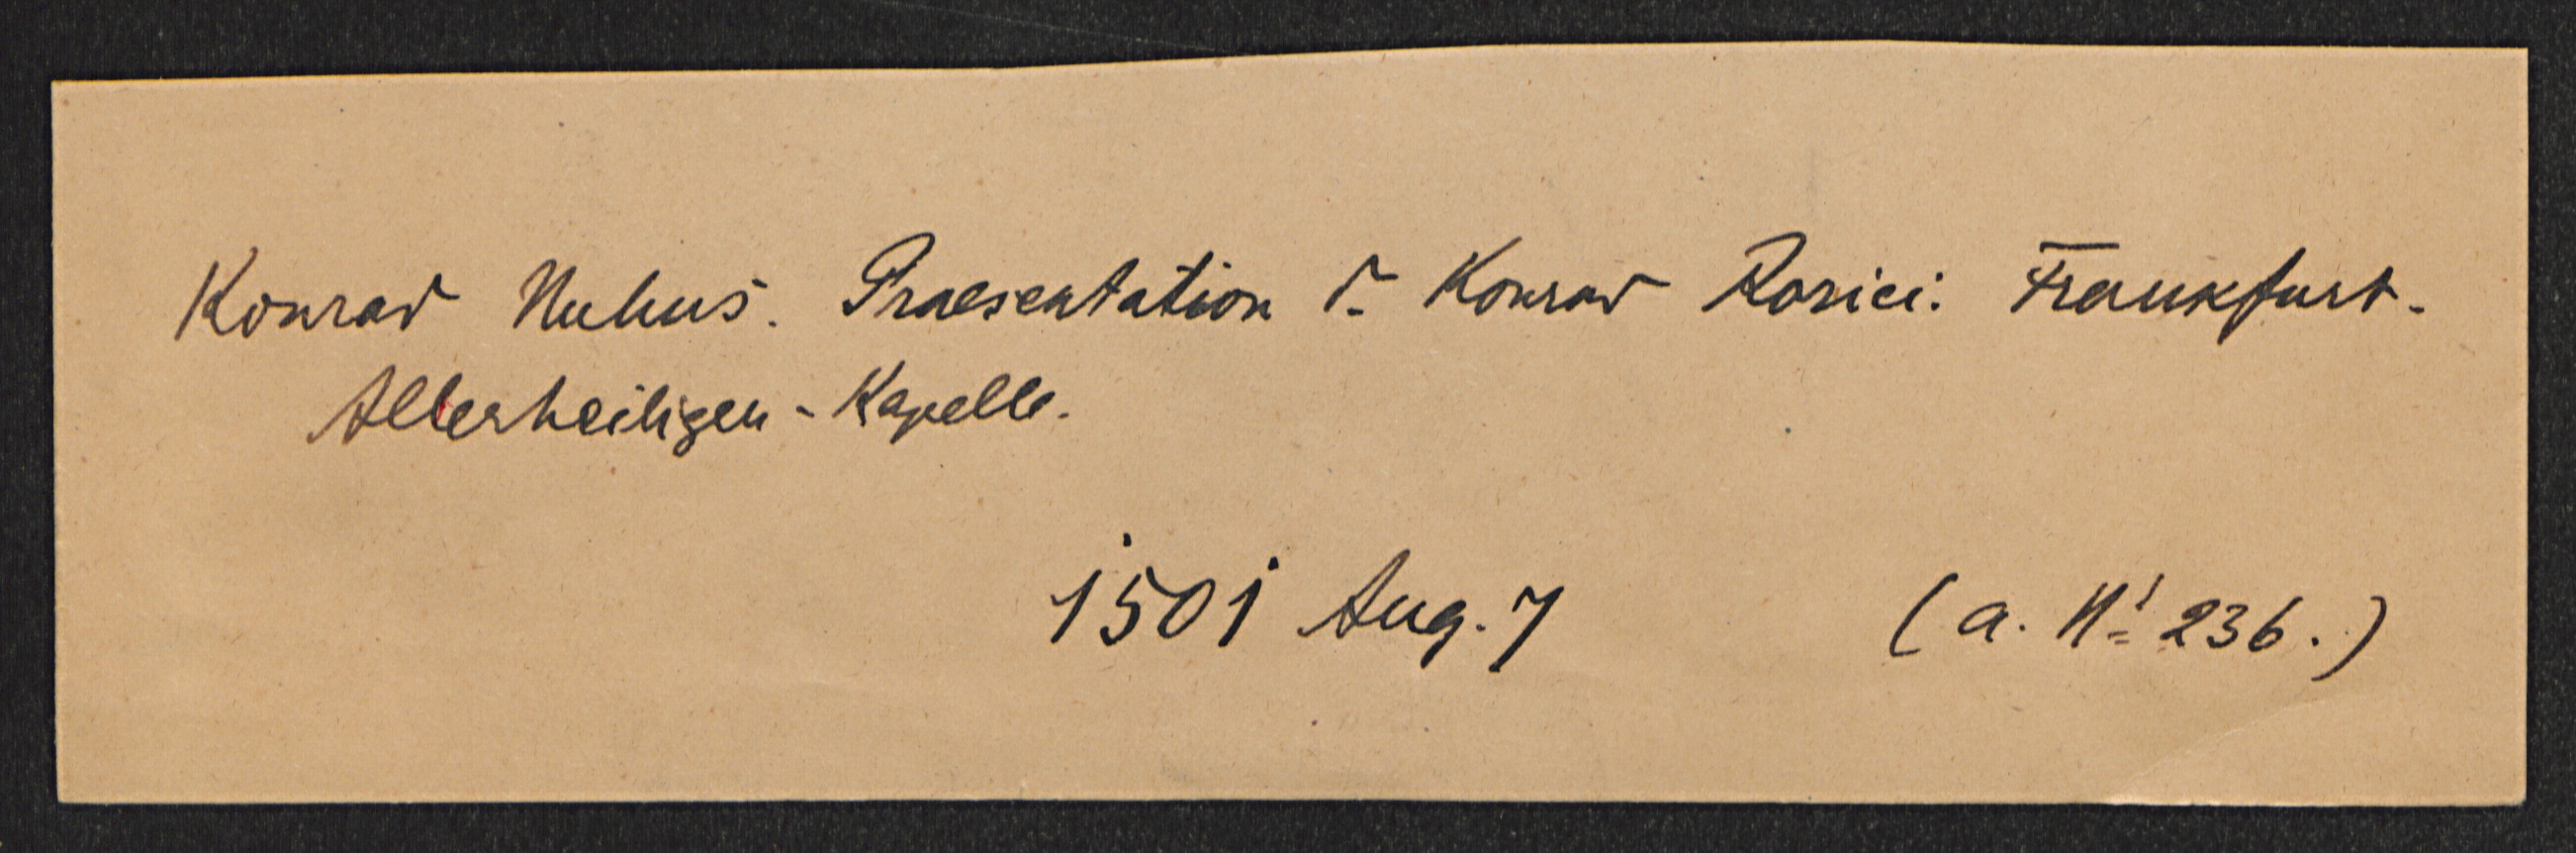 Konrad Nuhus. Praesentation d. Konrad Rosici: Frankfurt.
Allerheiligen-Kapelle.
1501 Aug. 7 (a. N: 236.)